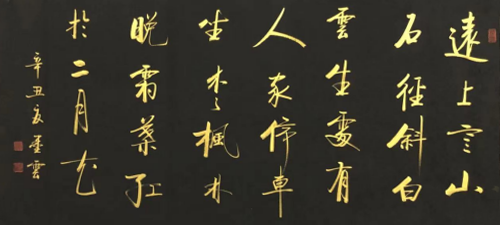 遠上寒山
石徑斜白
雲生處有
人家停車
坐愛楓林
晚霜葉紅
於二月花
辛丑夏墨雲